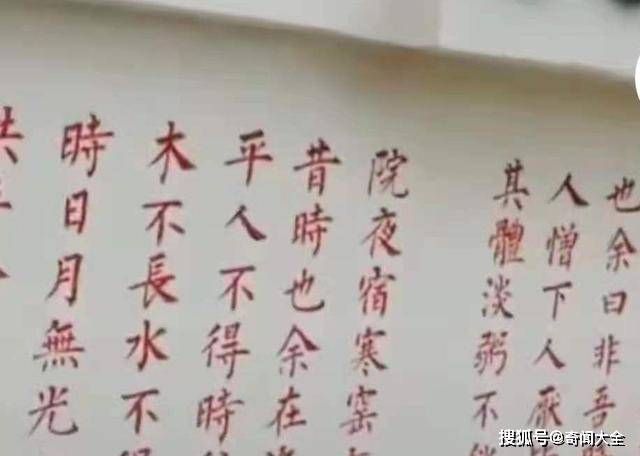 也余曰非吾
人憎下人厭
其體淡粥不
院夜宿寒窑
昔時也余在
平人不得時
木不長水不
時日月無光
搜狐号@奇闻大全